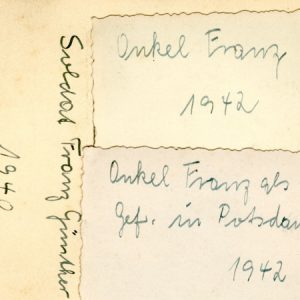 Onkel Franz
1942
Onkel Franz als
Gef. in Potsdam
1942
Soldat Franz Günther
1940